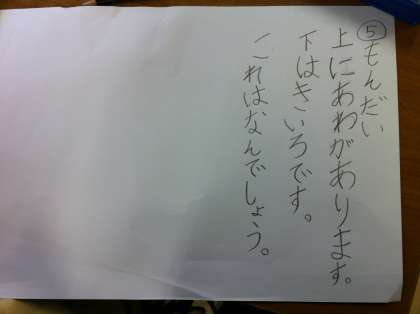 ⑤もんだい
上にあわがあります。
下はきいろです。
これはなんでしょう。